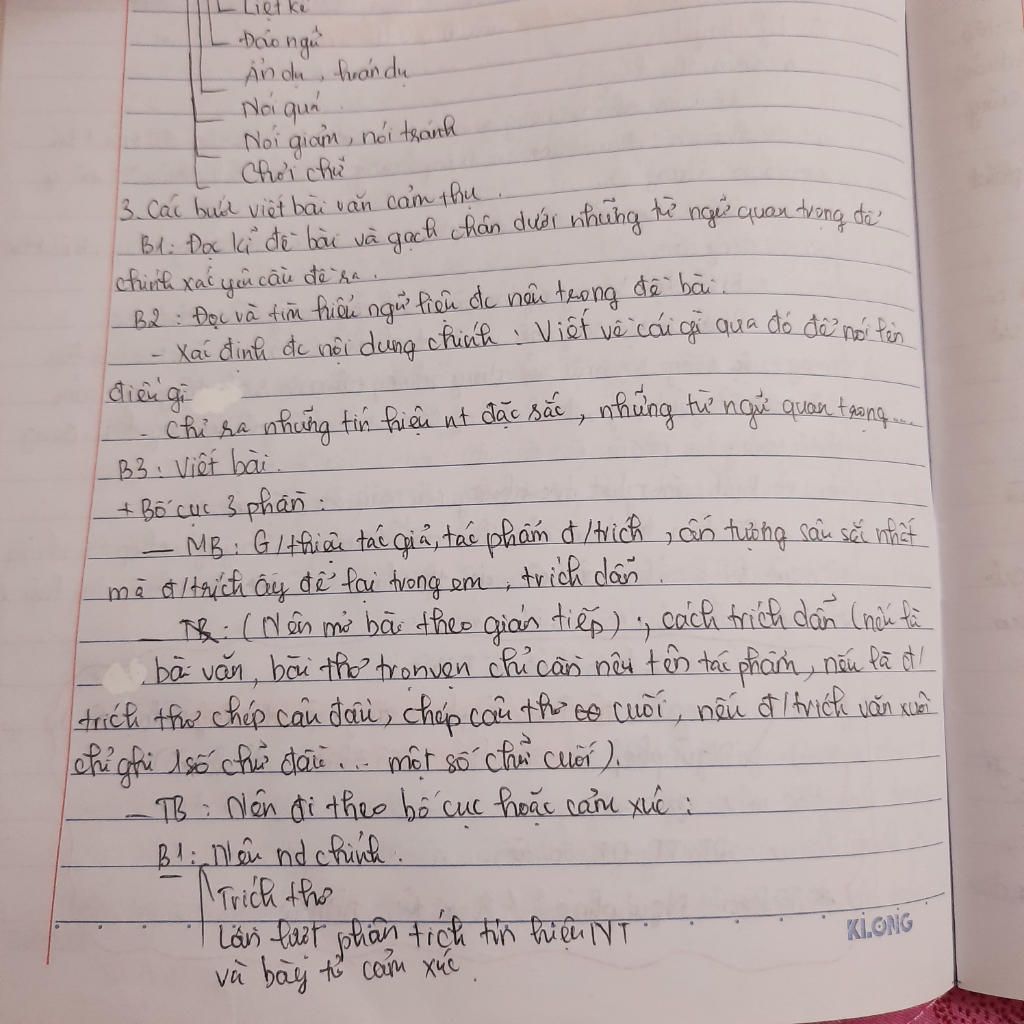 Liệt kê
Đảo ngữ
Ẩn dụ, hoán dụ
Nói quá
Nói giảm, nói tránh
Chơi chữ
3. Các bước viết bài văn cảm thụ.
B1: Đọc kĩ đề bài và gạch chân dưới những từ ngữ quan trọng để
chính xác yêu cầu đề ra.
B2: Đọc và tìm hiểu ngữ liệu đc nêu trong đề bài.
- Xác định đc nội dung chính: Viết về cái gì qua đó để nói lên
điều gì
- Chỉ ra những tín hiệu nt đặc sắc, những từ ngữ quan trọng...
B3: Viết bài.
+ Bố cục 3 phần:
- MB: G/thiệu tác giả, tác phẩm đ/trích, ấn tượng sâu sắc nhất
mà đ/trích ấy để lại trong em, trích dẫn.
- : (Nên mở bài theo gián tiếp); cách trích dẫn (nếu là
bài văn, bài thơ trọn vẹn chỉ cần nêu tên tác phẩm, nếu là đ/
trích thơ chép câu đầu, chép câu thơ cuối, nếu đ/trích văn xuôi
chỉ ghi 1 số chữ đầu... một số chữ cuối).
- TB: Nên đi theo bố cục hoặc cảm xúc:
B1: Nêu nd chính.
Trích thơ
Lần lượt phân tích tín hiệu NT
và bày tỏ cảm xúc.
KLONG